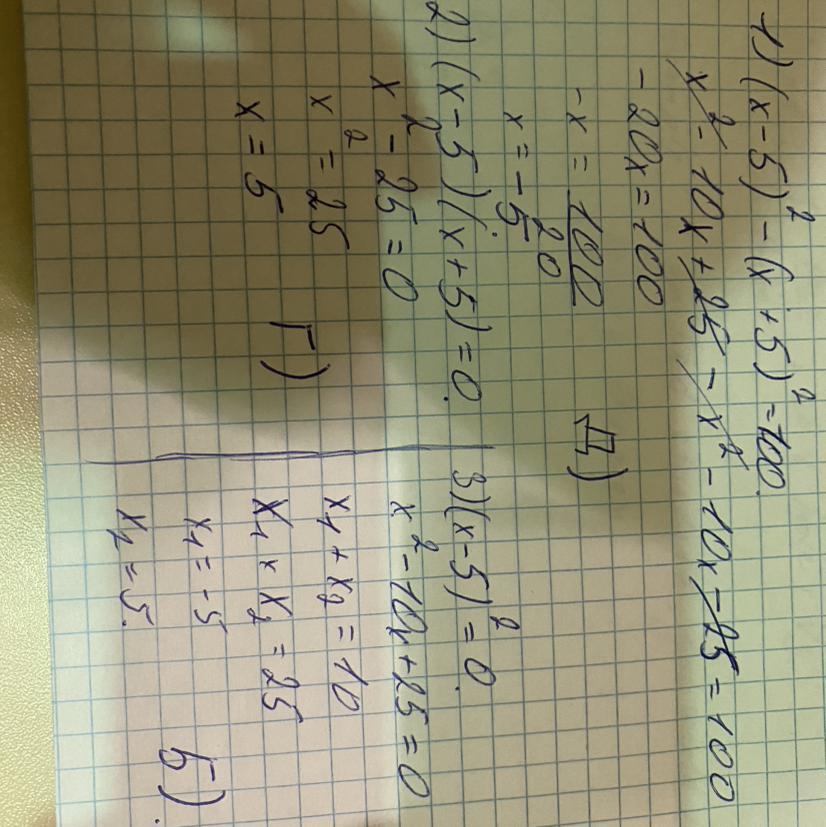 1) (x-5)² - (x+5)² = 100.
x² - 10x + 25 - x² - 10x - 25 = 100
-20x = 100
-x = 100/20
x = -5
Д)
2) (x-5)(x+5) = 0.
x² - 25 = 0
x² = 25
x = 5
Г)
3) (x-5)² = 0.
x² - 10x + 25 = 0
x₁ + x₂ = 10
x₁ × x₂ = 25
x₁ = -5
x₂ = 5.
Б).